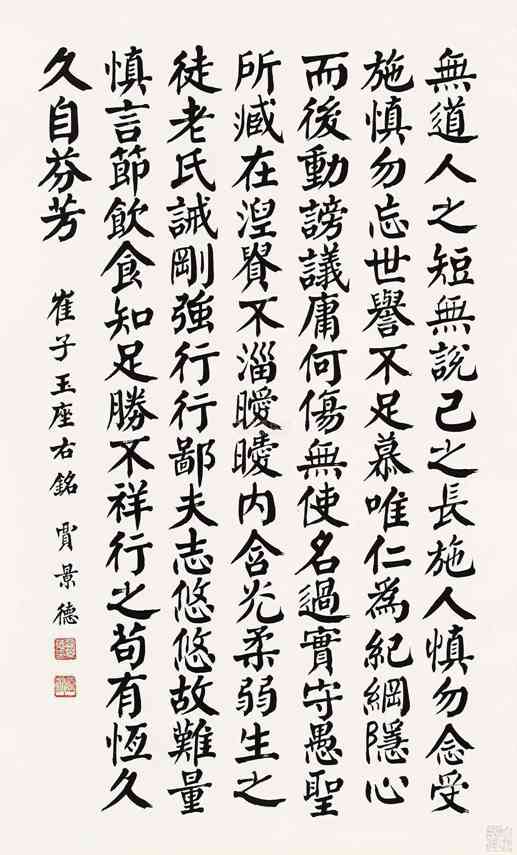 無道人之短無說己之長施人慎勿念受
施慎勿忘世譽不足慕唯仁為紀綱隱心
而後動謗議庸何傷無使名過實守愚聖
所臧在湼貴不淄曖曖內含光柔弱生之
徒老氏誡剛強行行鄙夫志悠悠故難量
慎言節飲食知足勝不祥行之苟有恆久
久自芬芳
崔子玉座右銘 賈景德